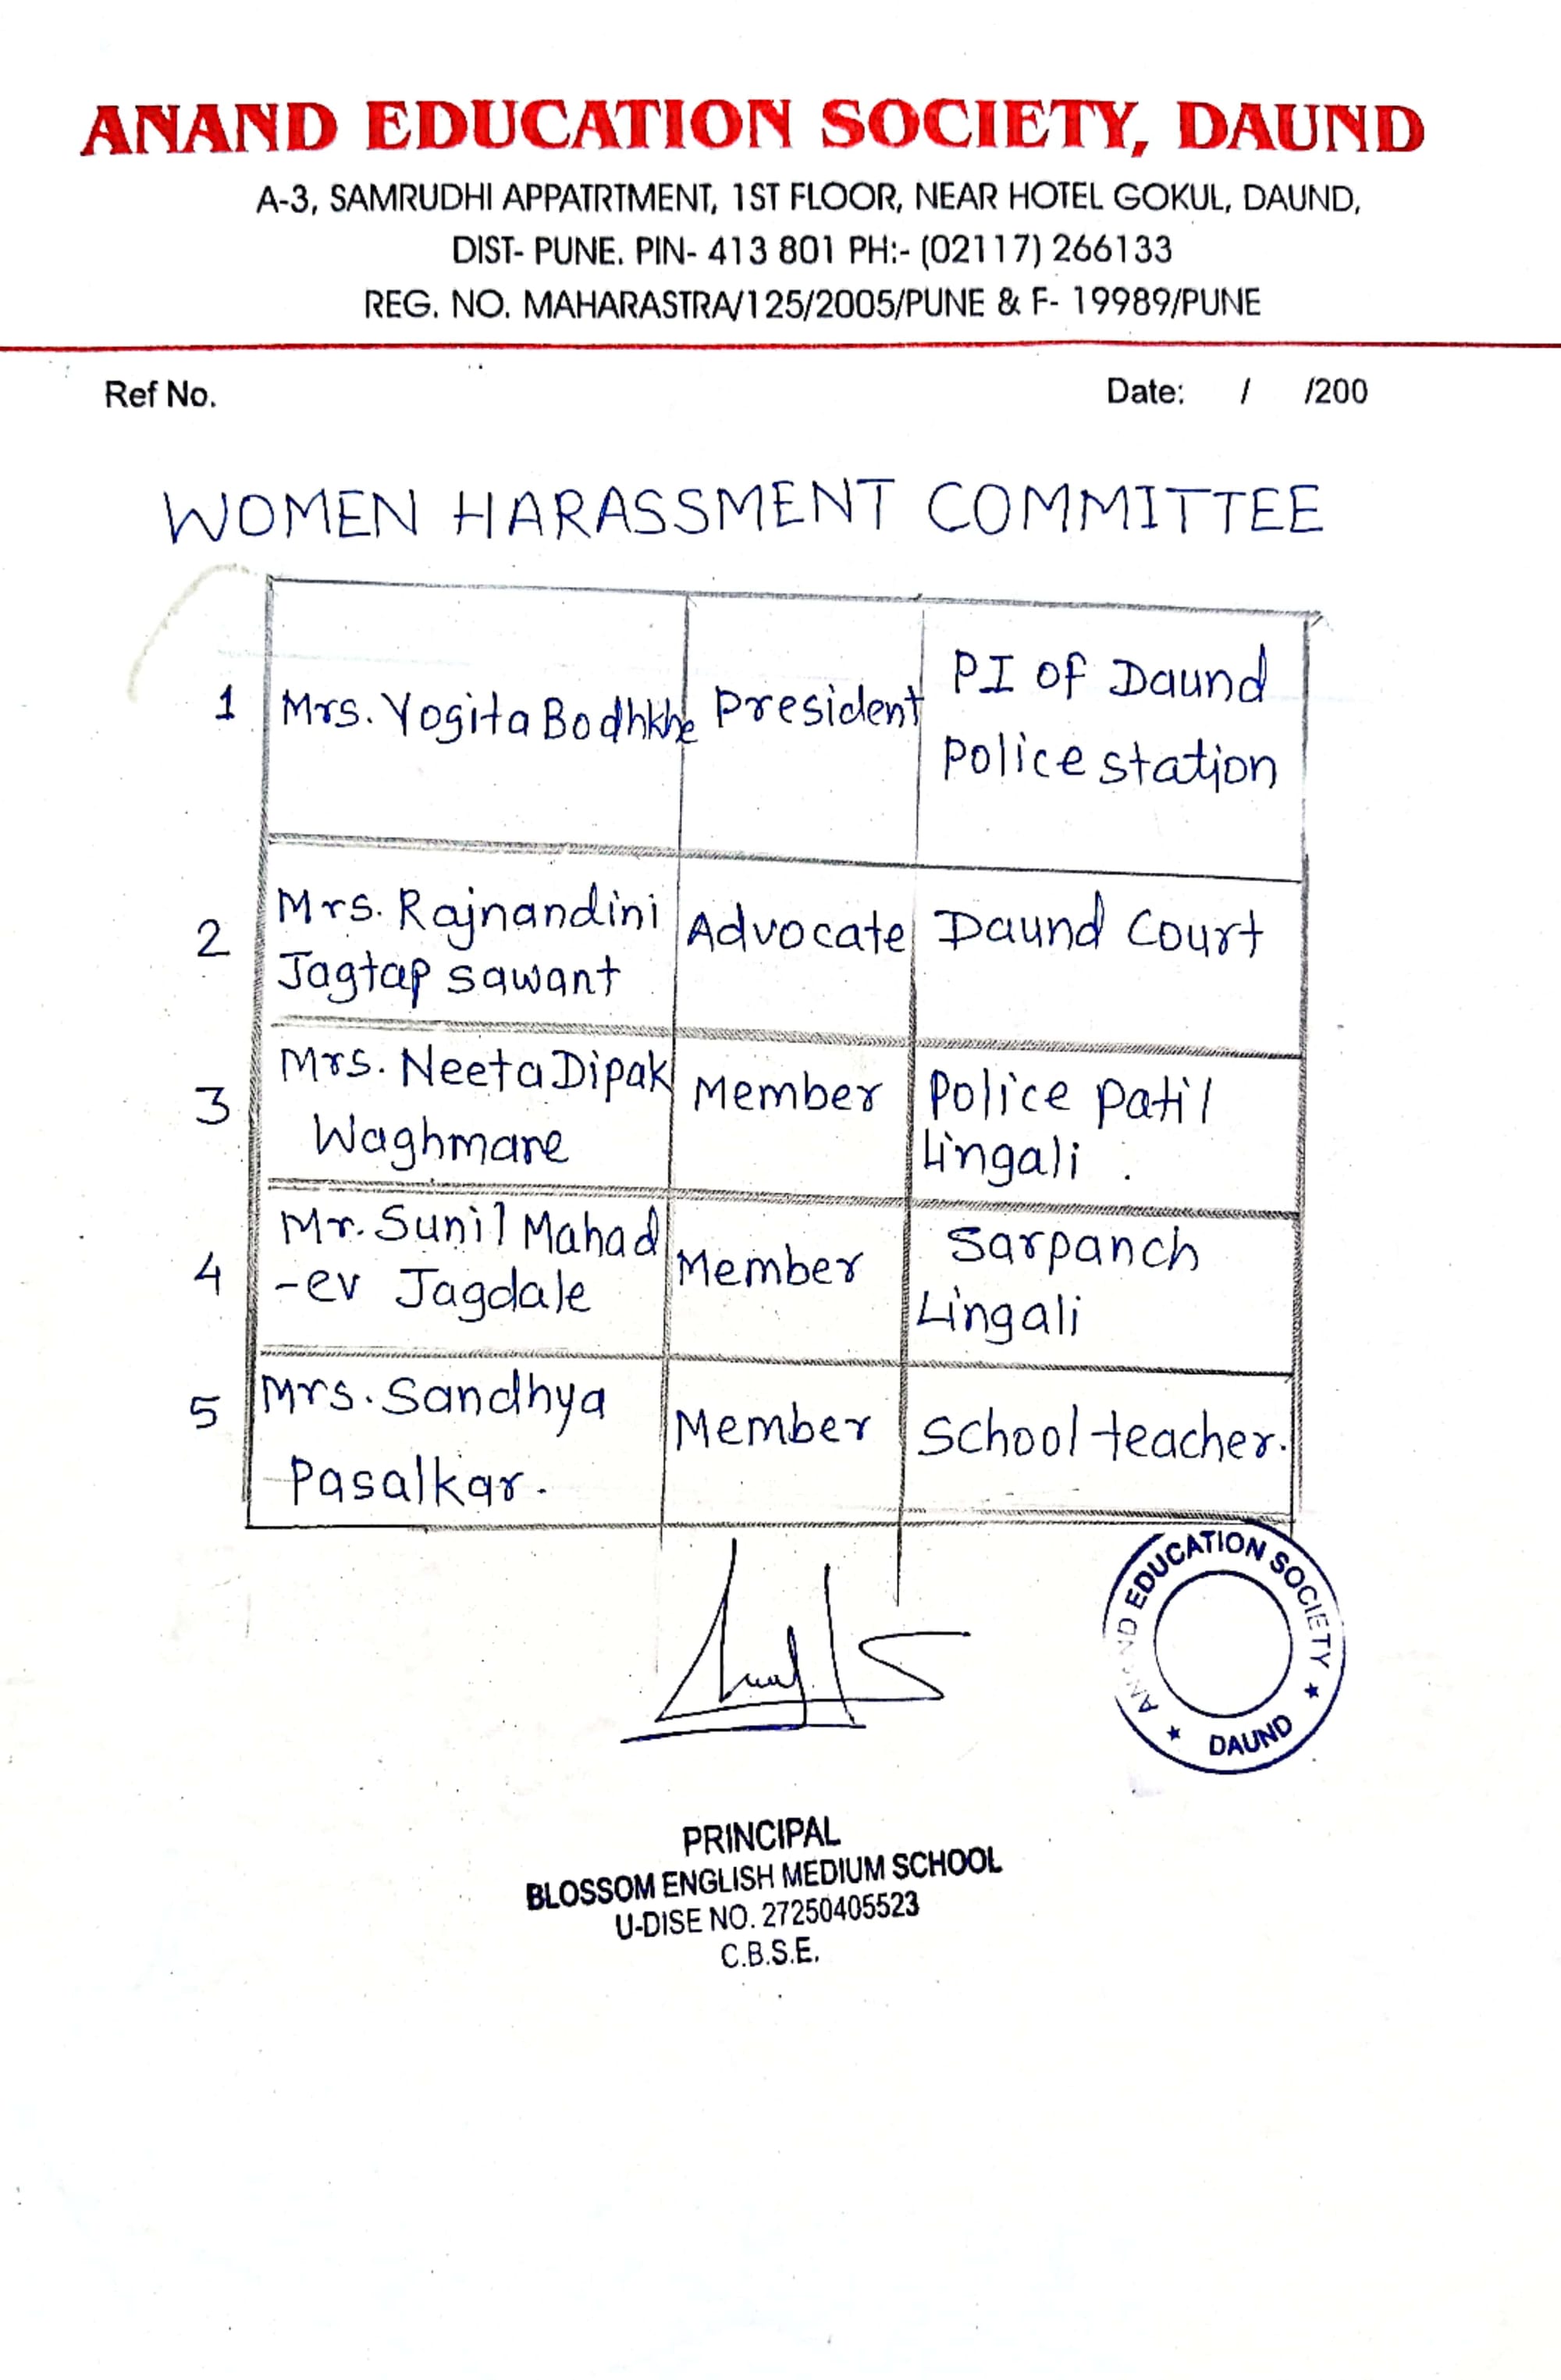 ANAND EDUCATION SOCIETY, DAUND
A-3, SAMRUDHI APPATRTMENT, 1ST FLOOR, NEAR HOTEL GOKUL, DAUND,
DIST- PUNE. PIN- 413 801 PH:- (02117) 266133
REG. NO. MAHARASTRA/125/2005/PUNE & F- 19989/PUNE
Ref No. Date: / /200
WOMEN HARASSMENT COMMITTEE
1 Mrs. Yogita Bodhkhe President PI of Daund
Police station
2 Mrs. Rajnandini
Jagtap sawant Advocate Daund Court
3 Mrs. Neeta Dipak
Waghmare Member Police Patil
Lingali .
4 Mr. Sunil Mahad
-ev Jagdale Member Sarpanch
Lingali
5 Mrs. Sandhya
Pasalkar. Member School teacher.
ANAND EDUCATION SOCIETY
★ DAUND ★
PRINCIPAL
BLOSSOM ENGLISH MEDIUM SCHOOL
U-DISE NO. 27250405523
C.B.S.E.